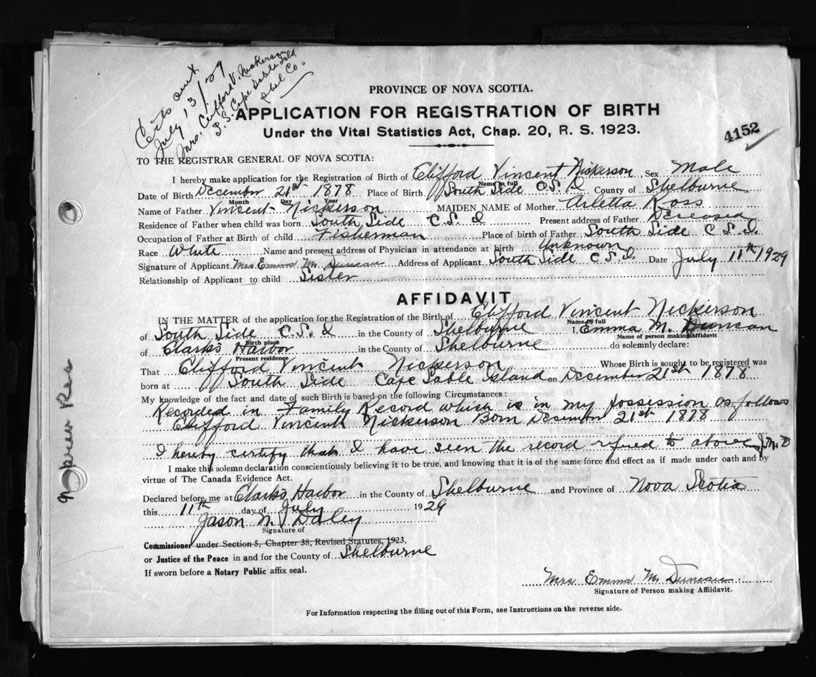 Certs out
July 13/29
Mrs. Clifford V. Nickerson
S. S. Cape Sable Isld
Shel Co.
PROVINCE OF NOVA SCOTIA.
APPLICATION FOR REGISTRATION OF BIRTH
Under the Vital Statistics Act, Chap. 20, R. S. 1923.
4152
TO THE REGISTRAR GENERAL OF NOVA SCOTIA:
I hereby make application for the Registration of Birth of Clifford Vincent Nickerson Sex Male
Name in full
Date of Birth December 21st 1878 Place of Birth South Side C S I County of Shelburne
Month Day Year
Name of Father Vincent Nickerson MAIDEN NAME of Mother Arletta Ross
Residence of Father when child was born South Side C. S I Present address of Father Deceased
Occupation of Father at Birth of child Fisherman Place of birth of Father South Side C S I.
Race White Name and present address of Physician in attendance at birth Unknown
Signature of Applicant Mrs Emma M. Duncan Address of Applicant South Side C S I. Date July 11th 1929
Relationship of Applicant to child Sister
AFFIDAVIT
IN THE MATTER of the application for the Registration of the Birth of Clifford Vincent Nickerson
Name in full
of South Side C.S. I in the County of Shelburne I, Emma M. Duncan
Birth place Name of person making Affidavit
of Clarks Harbor in the County of Shelburne do solemnly declare:
Present residence
That Clifford Vincent Nickerson Whose Birth is sought to be registered was
born at South Side Cape Sable Island on December 21st 1878
My knowledge of the fact and date of such Birth is based on the following Circumstances:
Recorded in Family Record which is in my possession as follows
Clifford Vincent Nickerson Born December 21st 1878
I hereby certify that I have seen the record refired to above J. N. D
I make this solemn declaration conscientiously believing it to be true, and knowing that it is of the same force and effect as if made under oath and by
virtue of The Canada Evidence Act.
Declared before me at Clarks Harbor in the County of Shelburne and Province of Nova Scotia
this 11th day of July 1929
Jason N. Daley
Signature of
Commissioner under Section 5, Chapter 38, Revised Statutes, 1923,
or Justice of the Peace in and for the County of Shelburne
If sworn before a Notary Public affix seal.
Mrs Emma M. Duncan
Signature of Person making Affidavit.
For Information respecting the filling out of this Form, see Instructions on the reverse side.